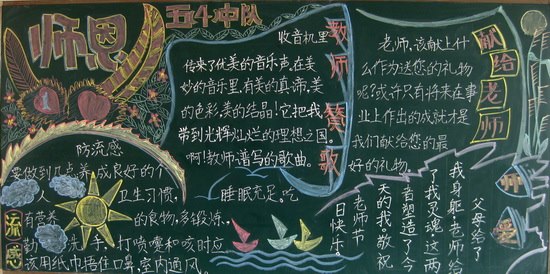 师恩
五4中队
教师赞歌
收音机里
传来了优美的音乐声,在美
妙的音乐里,有美的真谛,美
的色彩,美的结晶!它把我
带到光辉灿烂的理想之国。
啊!教师,谱写的歌曲。
献给老师
老师,该献上什
么作为送您的礼物
呢?或许只有将来在事
业上作出的成就才是
我们献给您的最
好的礼物。
师爱
父母给了
我身躯,老师给
了我灵魂,这两
者塑造了今
天的我。敬祝
老师节
日快乐。
流感
防流感
要做到几点养成良好的个
人卫生习惯,
睡眠充足,吃
有营养的食物,多锻炼,
勤洗手,打喷嚏和咳时应
该用纸巾捂住口鼻,室内通风。